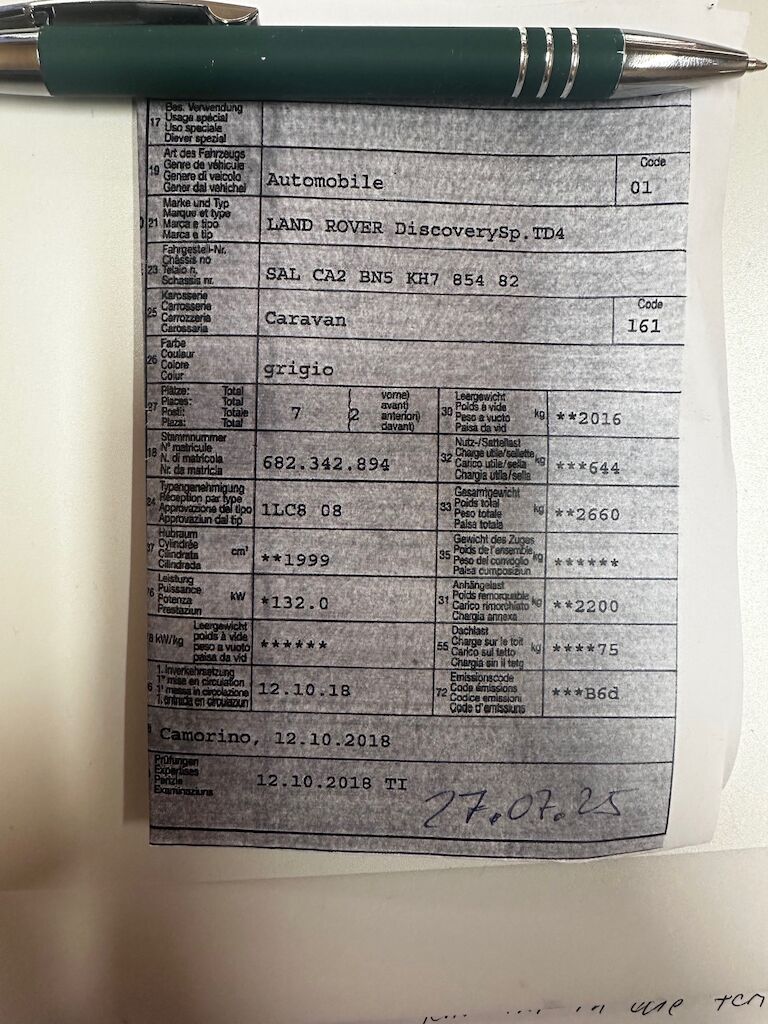 17 Bes. Verwendung
Usage spécial
Uso speciale
Diever spezial
19 Art des Fahrzeugs
Genre de véhicule
Genere di veicolo
Gener dal vehichel
Automobile
Code
01
21 Marke und Typ
Marque et type
Marca e tipo
Marca e tip
LAND ROVER DiscoverySp.TD4
23 Fahrgestell-Nr.
Châssis no
Telaio n.
Schassis nr.
SAL CA2 BN5 KH7 854 82
25 Karosserie
Carrosserie
Carrozzeria
Carossaria
Caravan
Code
161
26 Farbe
Couleur
Colore
Colur
grigio
27 Plätze: Total
Places: Total
Posti: Totale
Plaza: Total
7 (2 vorne)
avant)
anteriori)
davant)
30 Leergewicht
Poids à vide
Peso a vuoto
Paisa da vid
kg **2016
18 Stammnummer
N° matricule
N. di matricola
Nr. da matricla
682.342.894
32 Nutz-/Sattellast
Charge utile/sellette
Carico utile/sella
Chargia utila/sella
kg ***644
24 Typengenehmigung
Réception par type
Approvazione del tipo
Approvaziun dal tip
1LC8 08
33 Gesamtgewicht
Poids total
Peso totale
Paisa totala
kg **2660
37 Hubraum
Cylindrée
Cilindrata
Cilindrada
cm³ **1999
35 Gewicht des Zuges
Poids de l'ensemble
Peso del convoglio
Paisa cumposiziun
kg ******
76 Leistung
Puissance
Potenza
Prestaziun
kW *132.0
31 Anhängelast
Poids remorquable
Carico rimorchiato
Chargia annexa
kg **2200
8 kW/kg Leergewicht
poids à vide
peso a vuoto
paisa da vid
******
55 Dachlast
Charge sur le toit
Carico sul tetto
Chargia sin il tetg
kg ****75
6 1. Inverkehrsetzung
1re mise en circulation
1a messa in circolazione
1. entrada en circulaziun
12.10.18
72 Emissionscode
Code émissions
Codice emissioni
Code d'emissiuns
***B6d
Camorino, 12.10.2018
Prüfungen
Expertises
Perizie
Examinaziuns
12.10.2018 TI
27.07.25